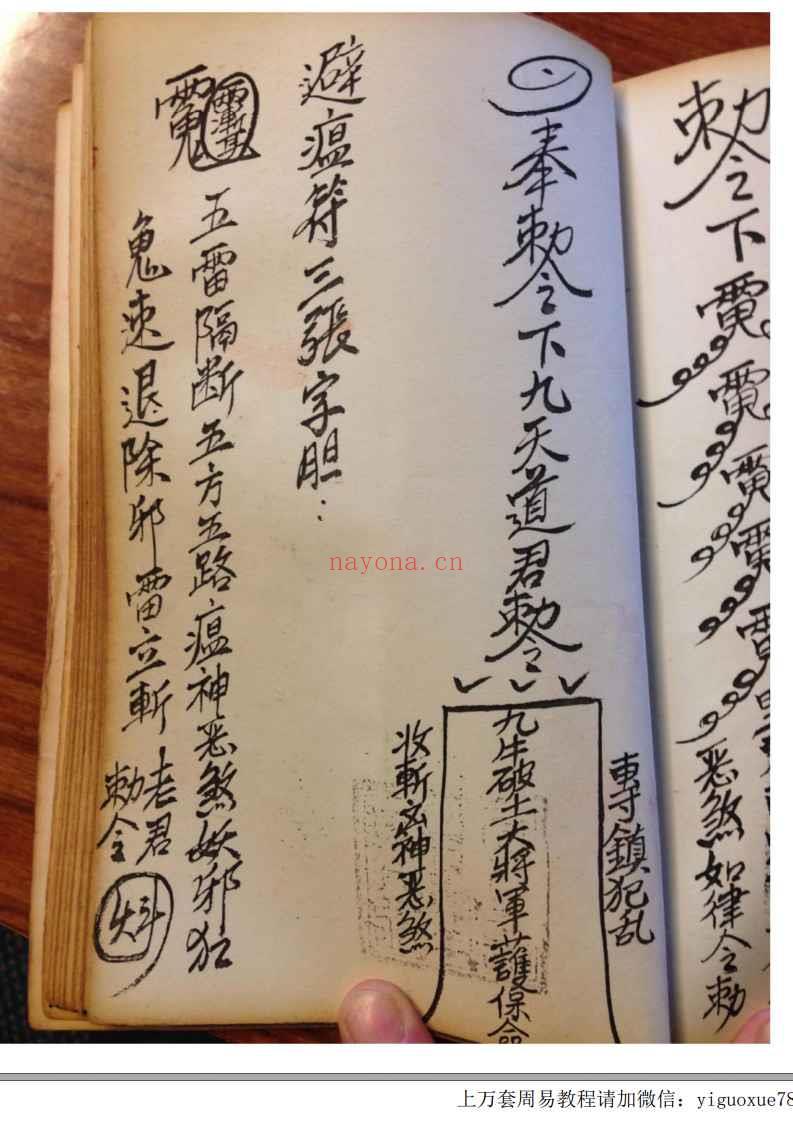 勅令下
恶煞如律令勅
奉勅令下九天道君勅令
專鎮犯乱
九牛破土大將軍護保命
收斬凶神恶煞
避瘟符三張字胆：
五雷隔断五方五路瘟神恶煞妖邪犯
鬼速退除邪雷立斬
老君
勅令
nayona.cn
上万套周易教程请加微信：yiguoxue78